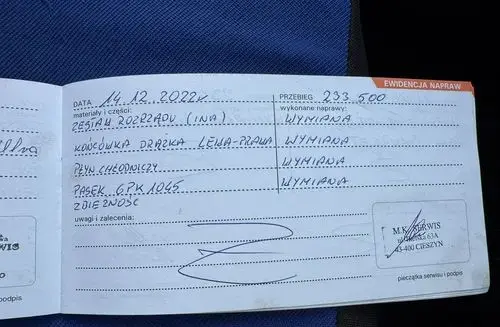 EWIDENCJA NAPRAW
DATA 14.12.2022r PRZEBIEG 233 500
materiały i części: wykonane naprawy:
ZESTAW ROZRZĄDU (INA) WYMIANA
KOŃCÓWKA DRĄŻKA LEWA-PRAWA WYMIANA
PŁYN CHŁODNICZY WYMIANA
PASEK 6PK1045 WYMIANA
ZBIEŻNOŚĆ
uwagi i zalecenia:
M.K. SERWIS
63A
43-400 CIESZYN
pieczątka serwisu i podpis
podpis